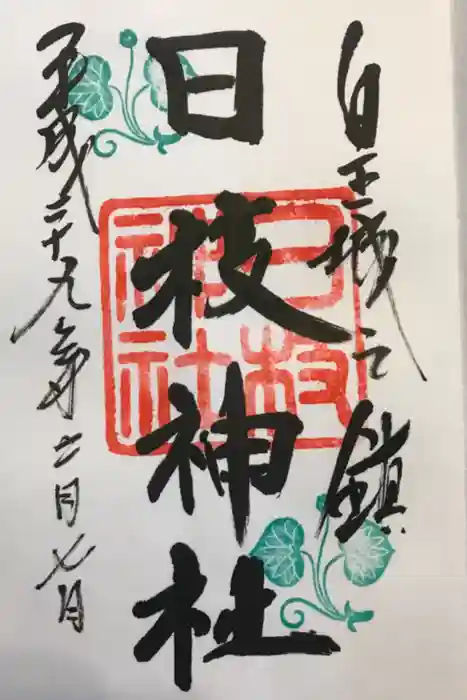 皇城之鎮
日枝神社
日枝
神社
平成二十九年六月七日